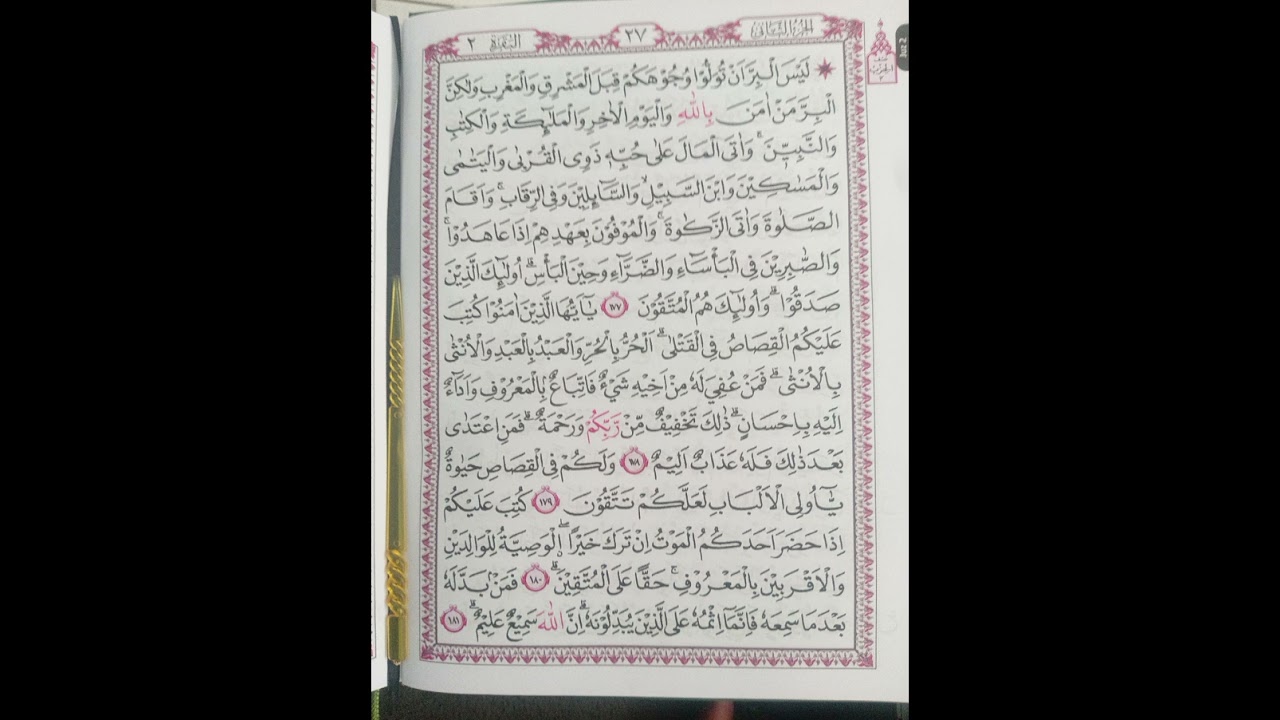 الجزء الثاني
٢٧
البقرة ٢
Juz 2
لَيْسَ الْبِرَّ اَنْ تُوَلُّوْا وُجُوْهَكُمْ قِبَلَ الْمَشْرِقِ وَالْمَغْرِبِ وَلٰكِنَّ
الْبِرَّ مَنْ اٰمَنَ بِاللّٰهِ وَالْيَوْمِ الْاٰخِرِ وَالْمَلٰۤىِٕكَةِ وَالْكِتٰبِ
وَالنَّبِيّٖنَ ۚ وَاٰتَى الْمَالَ عَلٰى حُبِّهٖ ذَوِى الْقُرْبٰى وَالْيَتٰمٰى
وَالْمَسٰكِيْنَ وَابْنَ السَّبِيْلِۙ وَالسَّاۤىِٕلِيْنَ وَفِى الرِّقَابِۚ وَاَقَامَ
الصَّلٰوةَ وَاٰتَى الزَّكٰوةَ ۚ وَالْمُوْفُوْنَ بِعَهْدِهِمْ اِذَا عَاهَدُوْا ۚ
وَالصّٰبِرِيْنَ فِى الْبَأْسَاۤءِ وَالضَّرَّاۤءِ وَحِيْنَ الْبَأْسِۗ اُولٰۤىِٕكَ الَّذِيْنَ
صَدَقُوْا ۗ وَاُولٰۤىِٕكَ هُمُ الْمُتَّقُوْنَ ١٧٧ يٰٓاَيُّهَا الَّذِيْنَ اٰمَنُوْا كُتِبَ
عَلَيْكُمُ الْقِصَاصُ فِى الْقَتْلٰىۗ اَلْحُرُّ بِالْحُرِّ وَالْعَبْدُ بِالْعَبْدِ وَالْاُنْثٰى
بِالْاُنْثٰىۗ فَمَنْ عُفِيَ لَهٗ مِنْ اَخِيْهِ شَيْءٌ فَاتِّبَاعٌ ۢبِالْمَعْرُوْفِ وَاَدَاۤءٌ
اِلَيْهِ بِاِحْسَانٍۗ ذٰلِكَ تَخْفِيْفٌ مِّنْ رَّبِّكُمْ وَرَحْمَةٌ ۗ فَمَنِ اعْتَدٰى
بَعْدَ ذٰلِكَ فَلَهٗ عَذَابٌ اَلِيْمٌ ١٧٨ وَلَكُمْ فِى الْقِصَاصِ حَيٰوةٌ
يّٰٓاُولِى الْاَلْبَابِ لَعَلَّكُمْ تَتَّقُوْنَ ١٧٩ كُتِبَ عَلَيْكُمْ
اِذَا حَضَرَ اَحَدَكُمُ الْمَوْتُ اِنْ تَرَكَ خَيْرًا ۖ ࣙالْوَصِيَّةُ لِلْوَالِدَيْنِ
وَالْاَقْرَبِيْنَ بِالْمَعْرُوْفِۚ حَقًّا عَلَى الْمُتَّقِيْنَۗ ١٨٠ فَمَنْۢ بَدَّلَهٗ
بَعْدَمَا سَمِعَهٗ فَاِنَّمَآ اِثْمُهٗ عَلَى الَّذِيْنَ يُبَدِّلُوْنَهٗۗ اِنَّ اللّٰهَ سَمِيْعٌ عَلِيْمٌۗ ١٨١